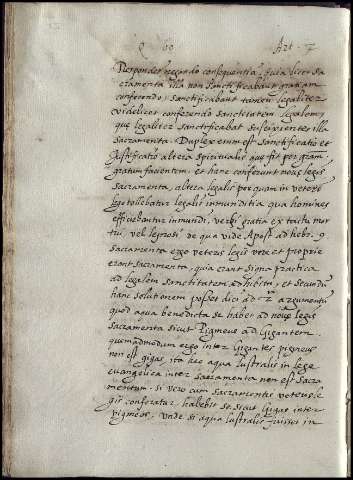 Q. 60 Art. 2
Respondet negando consequentia, quia licet sa
cramenta illa non sanctificabant gratiam
conferendo; sanctificabant tamen legaliter
videlicet conferendo sanctitatem legalem,
que legaliter sanctificabat suscipientes illa
sacramenta. Duplex enim est sanctificatio et
iustificatio altera spiritualis que fit per gram
gratum facientem, et hanc conferunt noue legis
sacramenta, altera legalis per quam in vetere
lege tollebatur legalis inmunditia qua homines
efficiebantur inmundi, verbi gratia ex tactu mor
tui, vel leprosi de qua vide Apost. ad hebr. 9
sacramenta ergo veteris legis vere et proprie
erant sacramenta, quia erant signa practica
ad legalem sanctitatem adhibita, et secundum
hanc solutionem posset dici ad 2 argumentum
quod aqua benedicta se habet ad noue legis
sacramenta sicut Pigmeus ad Gigantem,
quemadmodum ergo inter Gigantes pigmeus
non est gigas, ita hec aqua lustralis in lege
euangelica inter sacramenta non est sacra
mentum. si vero cum sacramentis veteris le
gis conferatur, habebit se sicut Gigas inter
pigmeos, unde si aqua lustralis fuisset in